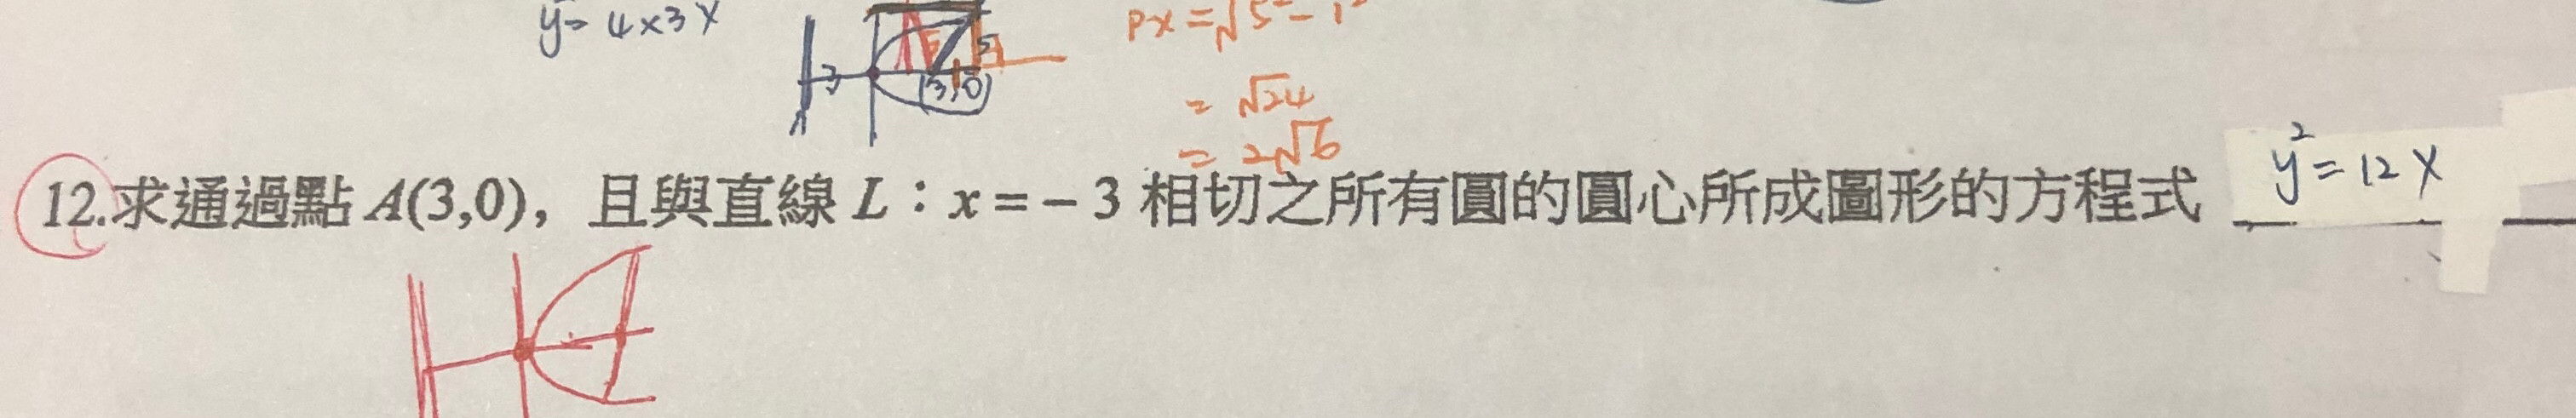 y²= 4×3x
PX=√5²-1²
3
5
(3,0)
= √24
= 2√6
12.求通過點 A(3,0)，且與直線 L：x=－3 相切之所有圓的圓心所成圖形的方程式 y²=12x